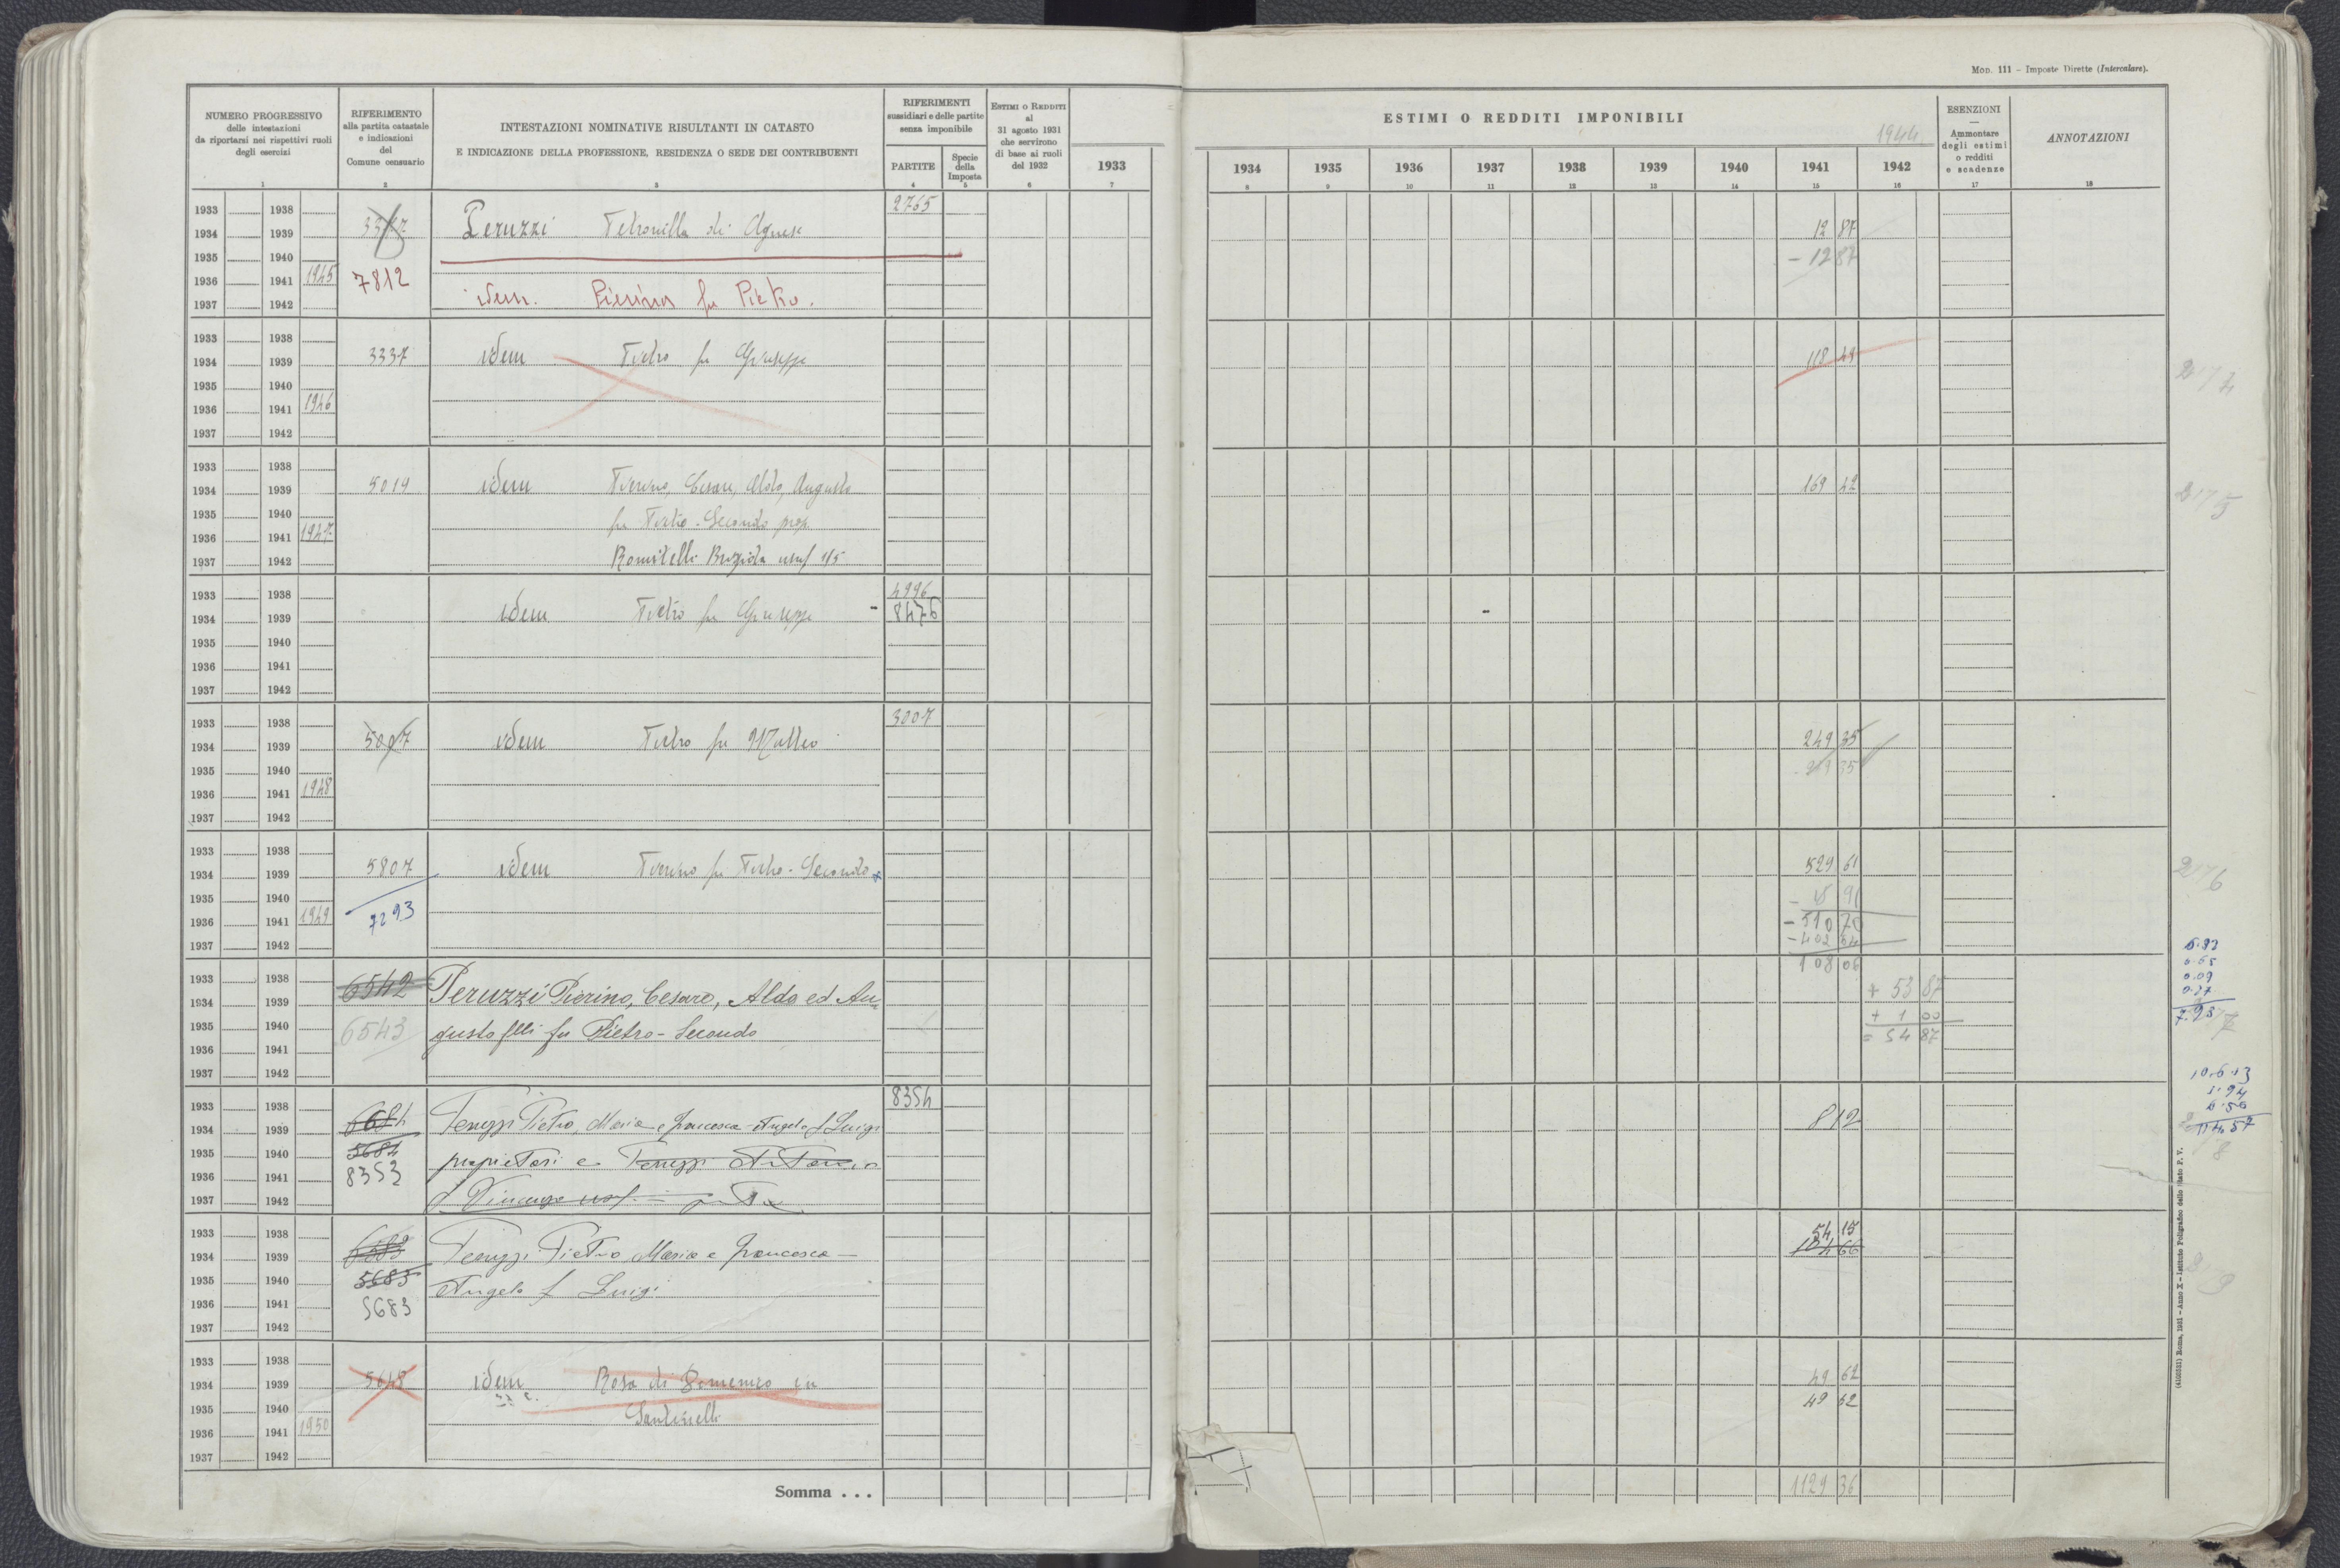 MOD. 111 – Imposte Dirette (Intercalare).
NUMERO PROGRESSIVO
delle intestazioni
da riportarsi nei rispettivi ruoli
degli esercizi
1
RIFERIMENTO
alla partita catastale
e indicazioni
del
Comune censuario
2
INTESTAZIONI NOMINATIVE RISULTANTI IN CATASTO
E INDICAZIONE DELLA PROFESSIONE, RESIDENZA O SEDE DEI CONTRIBUENTI
3
RIFERIMENTI
sussidiari e delle partite
senza imponibile
PARTITE
4
Specie
della
Imposta
5
ESTIMI O REDDITI
al
31 agosto 1931
che servirono
di base ai ruoli
del 1932
6
1933
7
ESTIMI O REDDITI IMPONIBILI
1944
1934 1935 1936 1937 1938 1939 1940 1941 1942
8 9 10 11 12 13 14 15 16
ESENZIONI
—
Ammontare
degli estimi
o redditi
e scadenze
17
ANNOTAZIONI
18
1933 1938 2765
1934 1939 Peruzzi Petronilla di Agnese 12 87
1935 1940 - 12 87
1936 1941 1945 7812
1937 1942 idem. Pierino fu Pietro.
1933 1938
1934 1939 3337 idem Pietro fu Giuseppe 118 49
1935 1940 2174
1936 1941 1946
1937 1942
1933 1938
1934 1939 5019 idem Pierino, Cesare, Aldo, Augusto 169 42
1935 1940 fu Pietro-Secondo prop. 2175
1936 1941 1947
1937 1942 Romitelli Brigida usuf 1/5
1933 1938 4996
1934 1939 idem Pietro fu Giuseppe - 8476
1935 1940
1936 1941
1937 1942
1933 1938 3007
1934 1939 5007 idem Pietro fu Matteo 249 35
1935 1940 249 35
1936 1941 1948
1937 1942
1933 1938
1934 1939 5807 idem Pierino fu Pietro-Secondo 529 61 2176
1935 1940 - 18 91
1936 1941 1949 7293 - 510 70
1937 1942 - 402 64
108 06
1933 1938 6542 Peruzzi Pierino, Cesare, Aldo ed Au-
1934 1939 + 53 87
1935 1940 6543 gusto flli fu Pietro-Secondo + 1 00
1936 1941 = 54 87
1937 1942
0.65
0.09
0.27
1933 1938 8354
1934 1939 6684 Peruzzi Pietro, Maria e Francesca-Angela f Luigi 812
1935 1940 5684 proprietari e Peruzzi Antonio
1936 1941 8353
1937 1942 f Vincenzo usuf.
1933 1938 54 15
1934 1939 Peruzzi Pietro Maria e Francesca— 104 66
1935 1940 5683 Angela f Luigi
1936 1941 5683
1937 1942
1933 1938
1934 1939 5648 idem Rosa di Domenico in 49 62
1935 1940 Santinelli 49 62
1936 1941 1950
1937 1942
Somma . . . 1129 36
(4100331) Roma, 1931 – Anno X – Istituto Poligrafico dello Stato P. V.